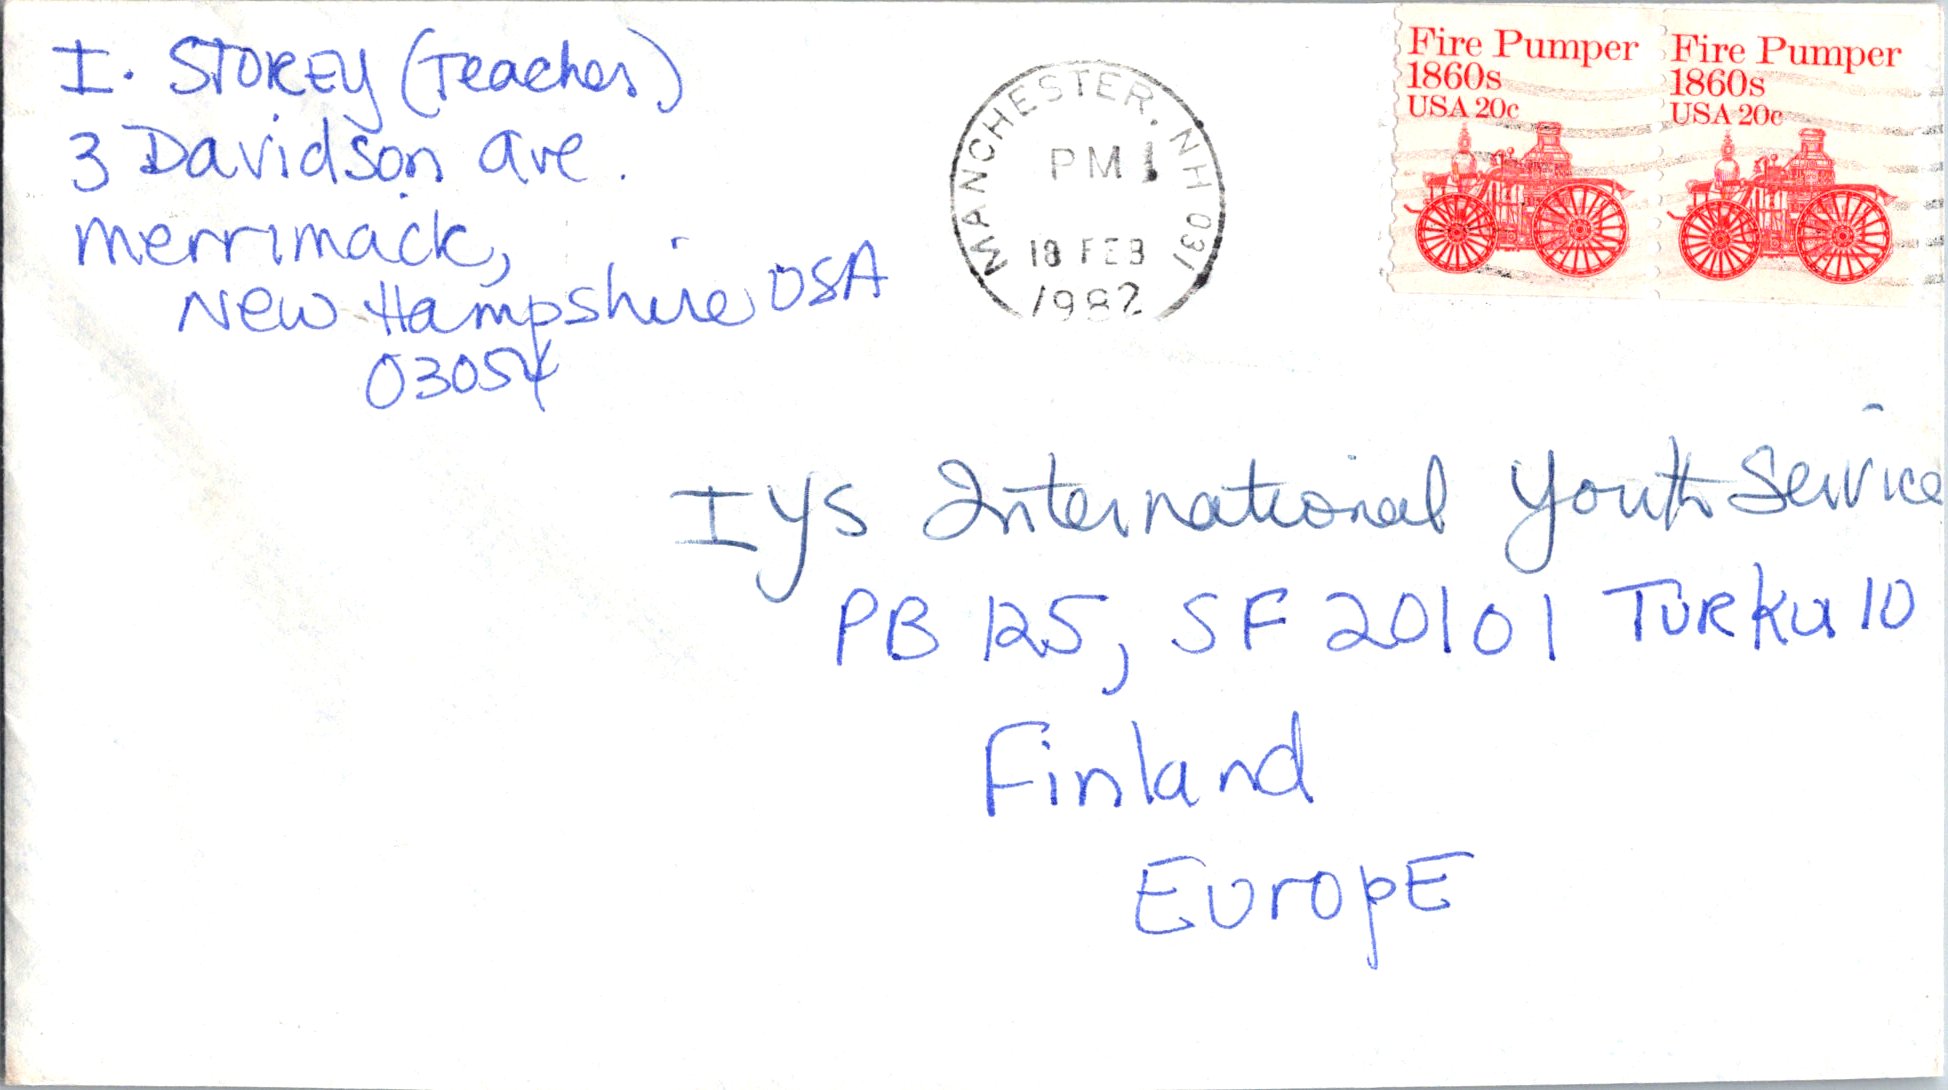 I. STOREY (Teacher)
3 Davidson ave.
merrimack,
New Hampshire USA
03054
MANCHESTER, NH 031
PM
18 FEB
1982
Fire Pumper
1860s
USA 20c
Fire Pumper
1860s
USA 20c
IYS International Youth Service
PB 125, SF 20101 TURKU 10
Finland
EuropE